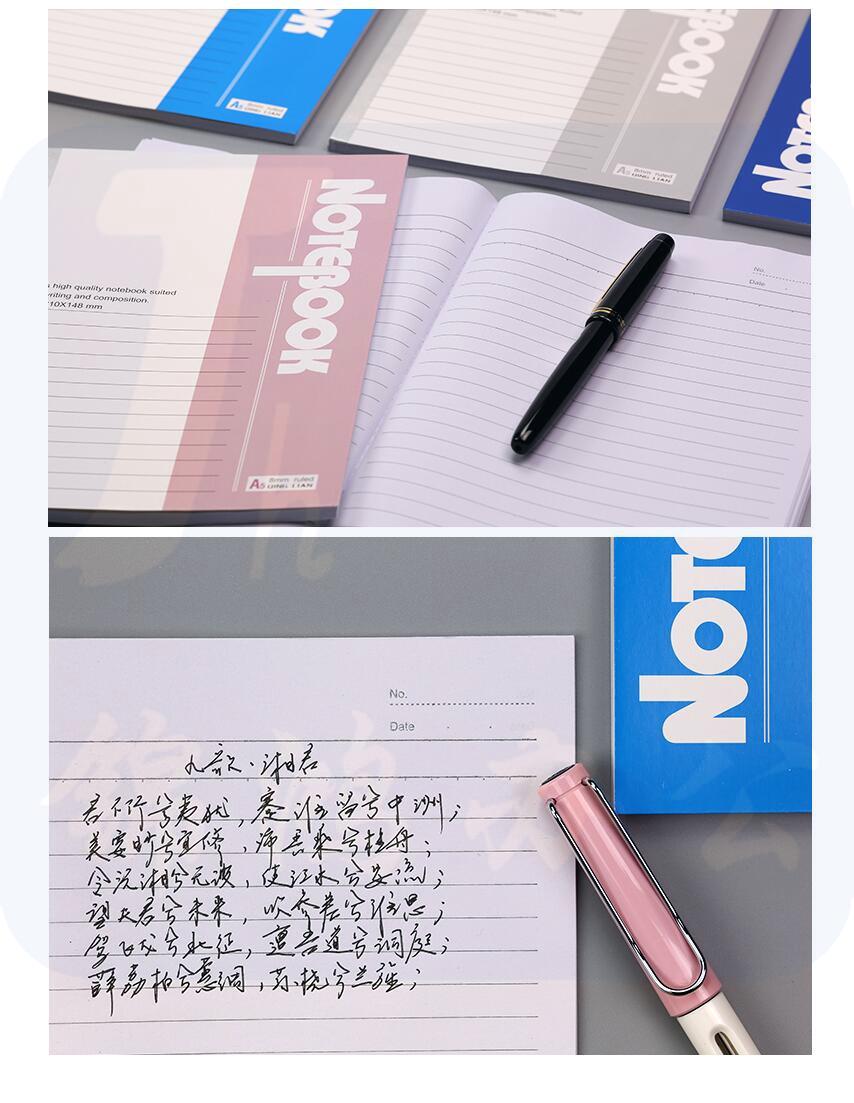 NOTEBOOK
A5 8mm ruled
QING LIAN
A5 8mm ruled
QING LIAN
high quality notebook suited
writing and composition.
210X148 mm
NOTEBOOK
A5 8mm ruled
QING LIAN
No.
Date
NOTE
No.
Date
九歌·湘君
君不行兮夷犹，蹇谁留兮中洲；
美要眇兮宜修，沛吾乘兮桂舟；
令沅湘兮无波，使江水兮安流；
望夫君兮未来，吹参差兮谁思；
驾飞龙兮北征，邅吾道兮洞庭；
薜荔柏兮蕙绸，荪桡兮兰旌；